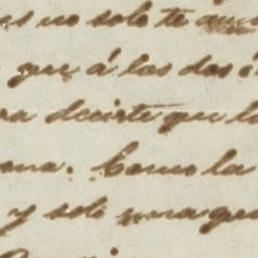 es no solo te
que á los dos
ra decirte que l
ana. Como la
y solo una que